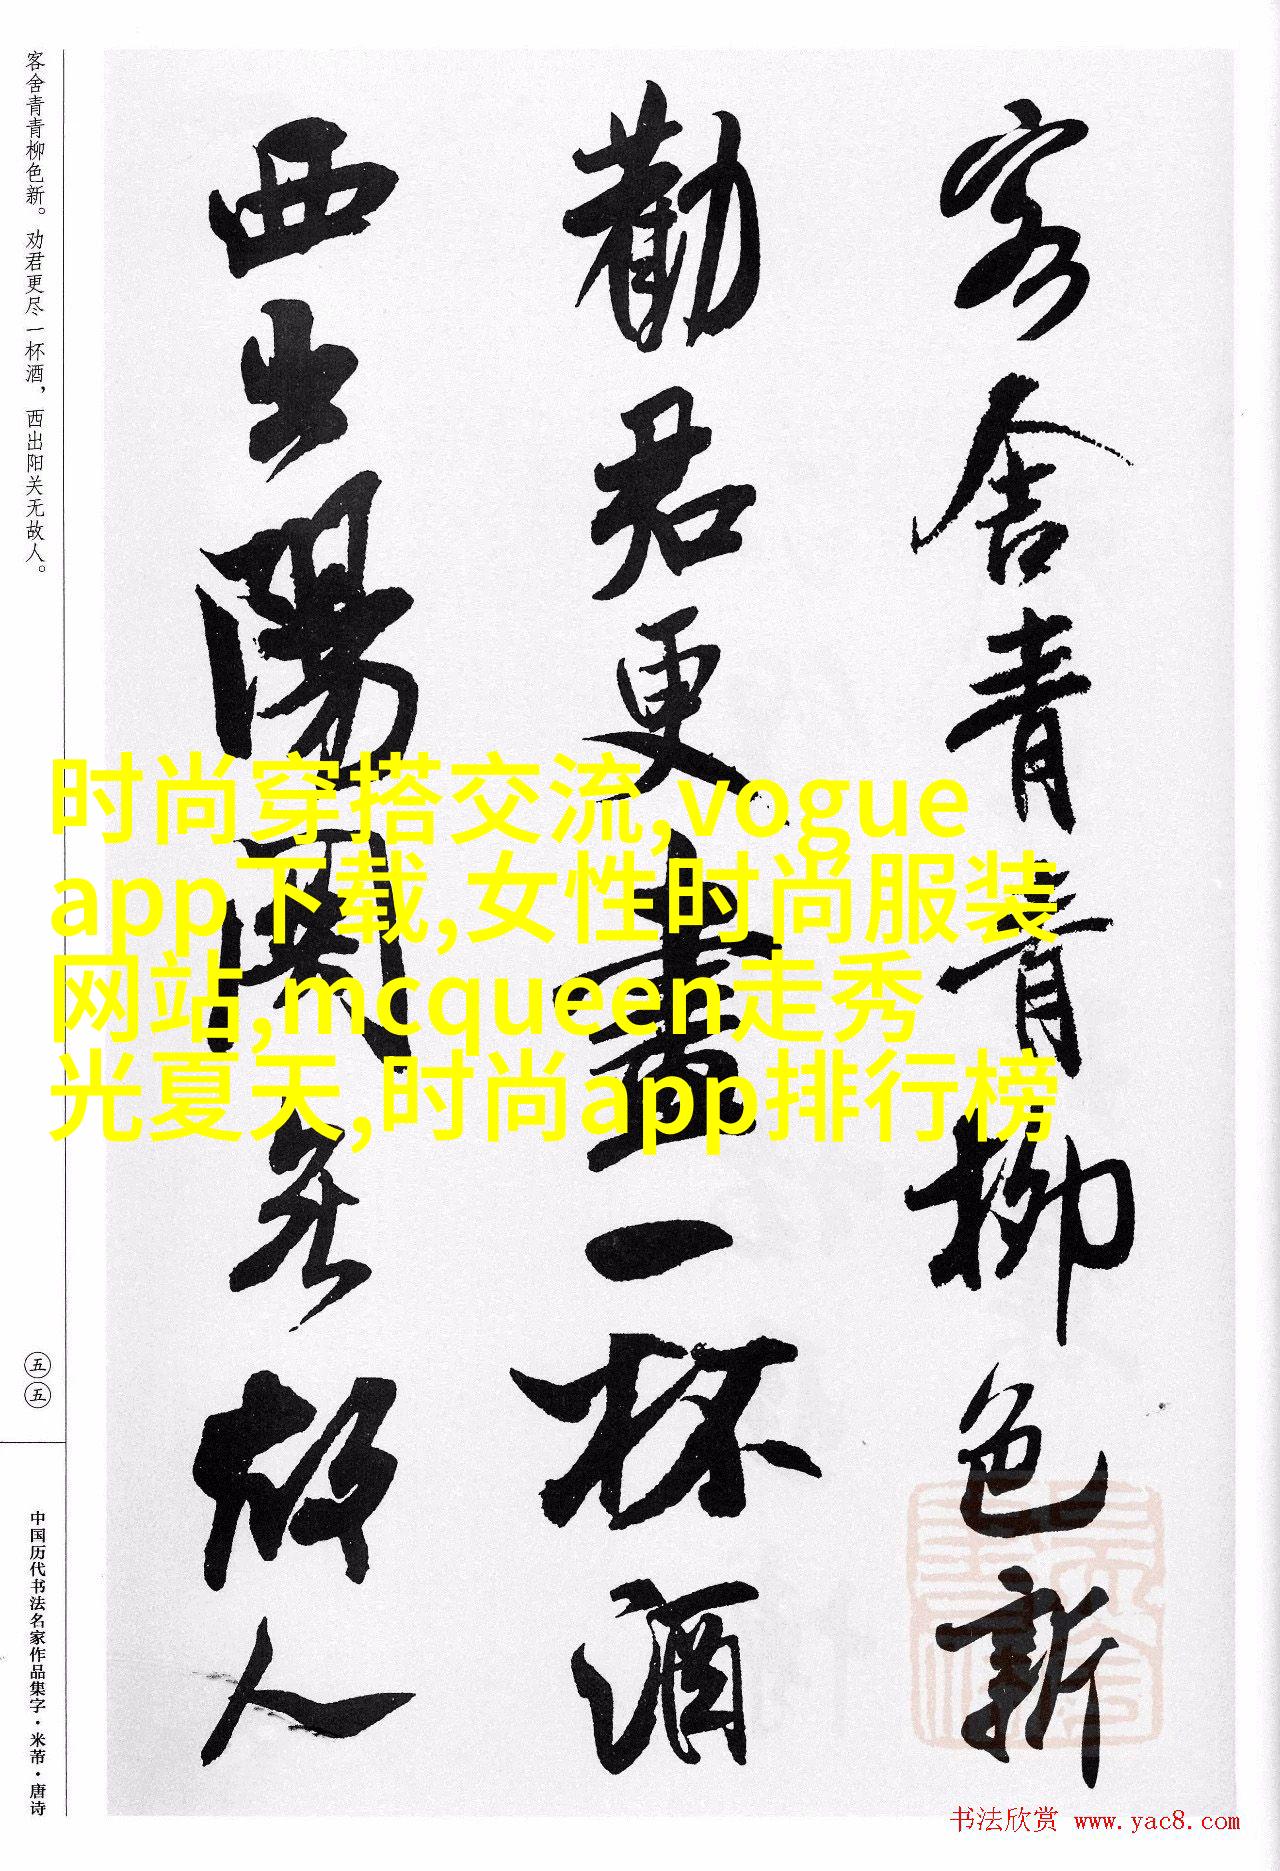 客舍青青柳色新
勸君更盡一杯酒
西出陽關無故人
客舍青青柳色新。劝君更尽一杯酒，西出阳关无故人。
五五
中国历代书法名家作品集字·米芾·唐诗
时尚穿搭交流,vogue
app下载,女性时尚服装
网站,mcqueen走秀
光夏天,时尚app排行榜
书法欣赏 www.yac8.com